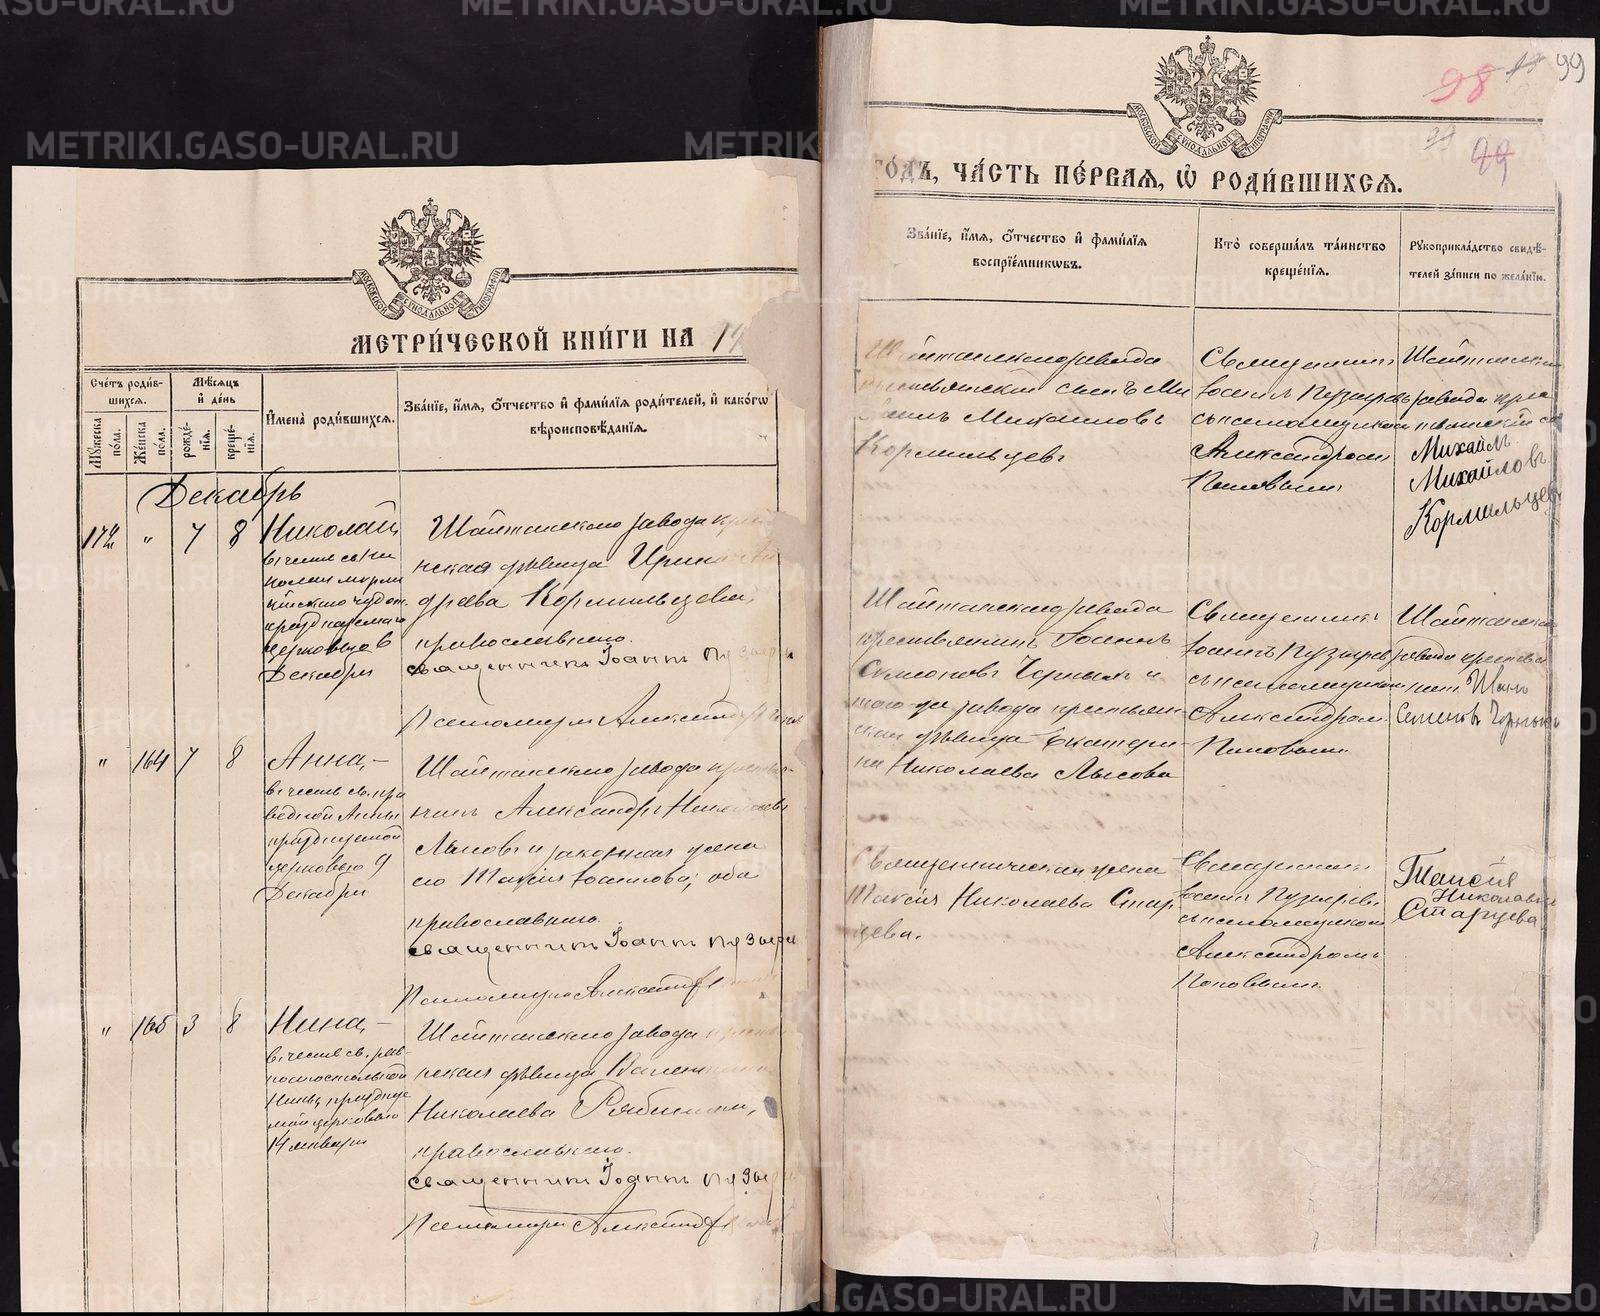 МЕТРИ́ЧЕСКОЙ КНИ́ГИ НА 19
Сче́тъ роди́в-
шихсѧ.
Мꙋ́жеска
по́ла.
Же́нска
по́ла.
Мѣ́сѧцъ
и҆ де́нь
рожде́-
нїѧ.
креще́-
нїѧ.
И҆мена̀ роди́вшихсѧ.
Зва́нїе, и҆́мѧ, ѻ҆́тчество и҆ фами́лїѧ роди́телей, и҆ како́гѡ
вѣроисповѣ́данїѧ.
МОСКОВСКОЙ СѴНОДАЛЬНОЙ ТИПОГРАФІИ
Декабрь
174 " 7 8
Николай,
въ честь св. Ни
колая мирли
кійскаго чудотв.
празднуемаго
церковью 6
Декабря
Шайтанскаго завода
нская дѣвица Ирина
дреева Кормильцева,
православнаго.
священникъ Іоаннъ Пузыре
Псаломщик Александръ
" 164 7 8
Анна, —
въ честь св. пра
ведной Анны
празднуемой
церковью 9
Декабря
Шайтанскаго завода кресть-
нинъ Александръ Николаевъ
Лысовъ и законная жена
его Таисія Іоаннова, оба
православнаго.
священникъ Іоаннъ Пузыре
Псаломщикъ Александръ
" 165 3 8
Нина, —
въ честь св. рав-
ноапостольной
Нины, праздnуе
мой церковью
14 января
Шайтанскаго завода
нская дѣвица Вален
Николаева Рябинина,
православнаго.
священникъ Іоаннъ Пузыр
Псаломщик Александръ
98 99
99
МОСКОВСКОЙ СѴНОДАЛЬНОЙ ТИПОГРАФІИ
ГО́ДЪ, ЧА́СТЬ ПЕ́РВАѦ, Ѡ҆ РОДИ́ВШИХСѦ.
Зва́нїе, и҆́мѧ, ѻ҆́тчество и҆ фами́лїѧ
воспрїе́мникѡвъ.
Кто̀ соверша́лъ та́инство
креще́нїѧ.
Рꙋкоприкла́дство свидѣ́-
телей за́писи по жела́нїю.
Шайтанскаго завода
крестьянскій сынъ Ми
хаилъ Михаиловъ
Кормильцевъ
Священникъ
Іоаннъ Пузыревъ
съ псаломщикомъ
Александромъ
Поповымъ
Шайтанскаго
завода кре
стьянскій сы
Михайлъ
Михайловъ
Кормильцевъ
Шайтанскаго завода
крестьянинъ Іоаннъ
Симеоновъ Черныхъ и
того-же завода крестьян-
ская дѣвица Екатери-
на Николаева Лысова
Священникъ
Іоаннъ Пузырев
съ псаломщикомъ
Александромъ
Поповымъ
Шайтанскаго
завода крестья
нинъ Иванъ
Семеновъ Черныхъ
Священническая жена
Таисія Николаева Стар
цева.
Священникъ
Іоаннъ Пузыревъ
съ псаломщикомъ
Александромъ
Поповымъ
Таисія
Николаевна
Старцева
METRIKI.GASO-URAL.RU